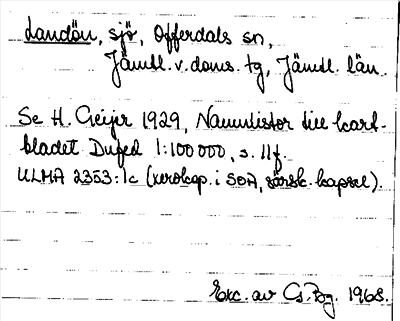 Landön, sjö, Offerdals sn,
Jämtl. v. doms. tg, Jämtl. län.
Se H. Geijer 1929, Namnlistor till kart-
bladet Dufed 1:100 000, s. 11 f.
ULMA 2353:1c (xerokop. i SOA, särsk. kapsel).
Exc. av Cs. Bg. 1968.